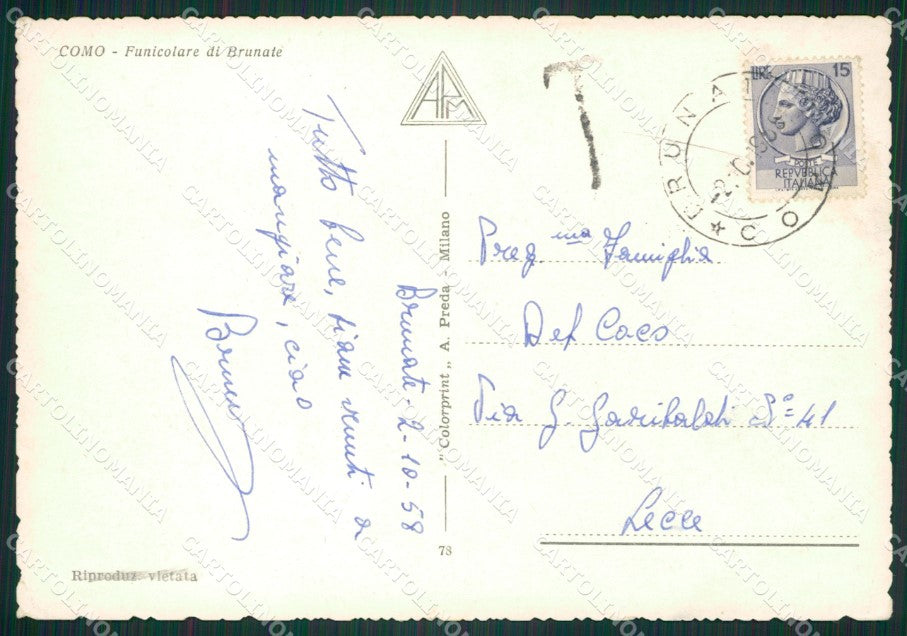 COMO - Funicolare di Brunate
APM
LIRE 15
POSTE
REPVBBLICA
ITALIANA
BRUNATE
COMO
T
Tutto bene, siam venuti a
mangiare, ciao
Bruno
Brunate - 2-10-58
"Colorprint„ A. Preda - Milano
Preg ma Famiglia
Del Coco
Via G. Garibaldi N°= 41
Lecce
78
Riproduz. vietata
CARTOLINOMANIA